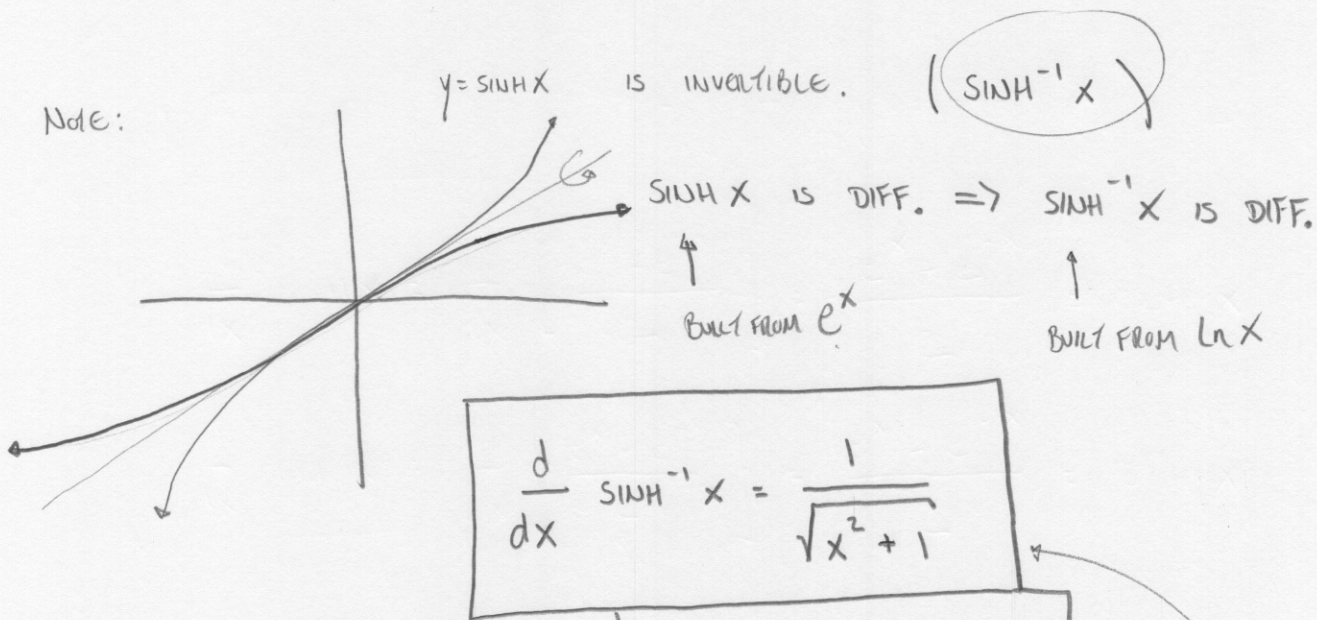 y = SINH X IS INVERTIBLE. ( SINH⁻¹ X )
NOTE:
SINH X IS DIFF. => SINH⁻¹ X IS DIFF.
BUILT FROM e^x BUILT FROM Ln X
d/dx SINH⁻¹ X = 1/√(x² + 1)